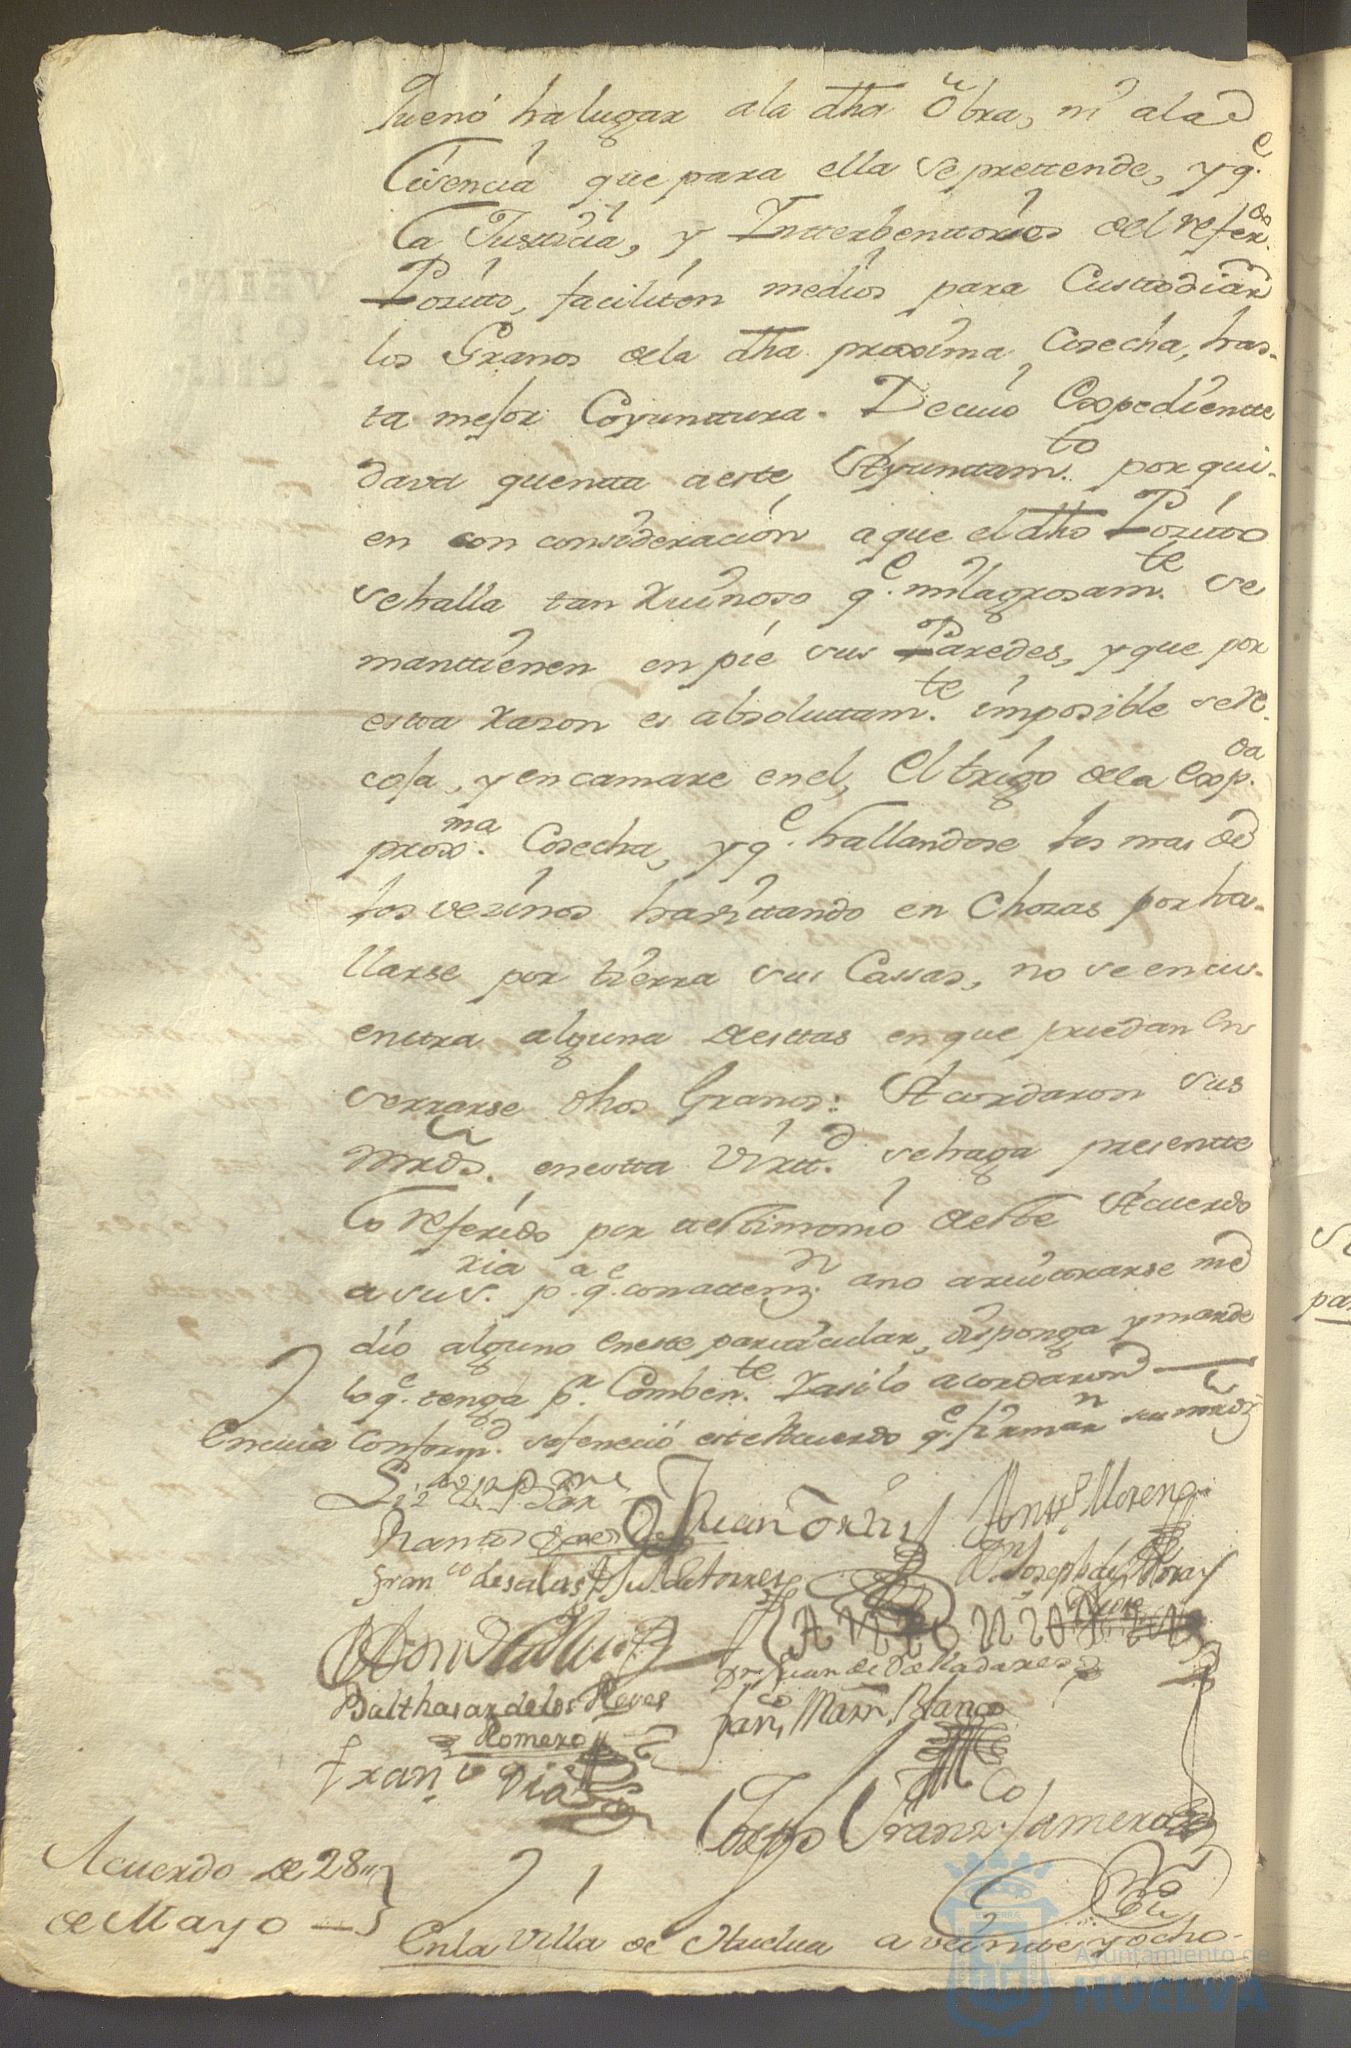 quenó ha lugar ala dha Obra, ni ala
Lisencia que para ella se prettende, y q.e
la Justicia, y Intterbenttores del refer.do
Pósitto, faciliten medios para Custtodiar
los Granos dela dha proxima Cosecha, has-
ta mejor Coyunttura. De cuio Expedientte
dava quentta a este Ayunttam.to por qui-
en con consideración a que el dho Pósitto
se halla tan Ruinoso q.e milagrosam.te se
manttienen en pie sus Paredes, y que por
estta Razon es absoluttam.te imposible se re-
coja, y encamare en el, El trigo dela Exp.da
prox.ma Cosecha, y q.e hallandose los mas de
los vezinos havittando en Chozas por ha-
llarse por tierra sus Cassas, no se encu-
enttra alguna de esttas en que puedan en
serrarse dhos Granos: Acordaron sus
mrds. en estta virtt.d se haga presentte
lo referido por testtimonio deste Acuerdo
a su S.ria p.a q.e con atten.n a no arvittrarse me
dio alguno en este partticular, disponga y mande
lo q.e tenga p.r Comben.te Y asi lo acordaron
En cuia Conform.d se feneció este Acuerdo q.e firman sus mrds
Juan Torres
Ant.o Moreno
Fran.co de Salas
de Torres
D.n Joseph de Mora
Dn Juan de Valladares
Balthasar de los Reyes
Romero
Fran.co Marn. Blanco
Fran.co Dias
Franz.co Jamerdo
Acuerdo de 28
de Mayo
En la Villa de Huelva a veintte y ocho
Ayuntamiento de
HUELVA